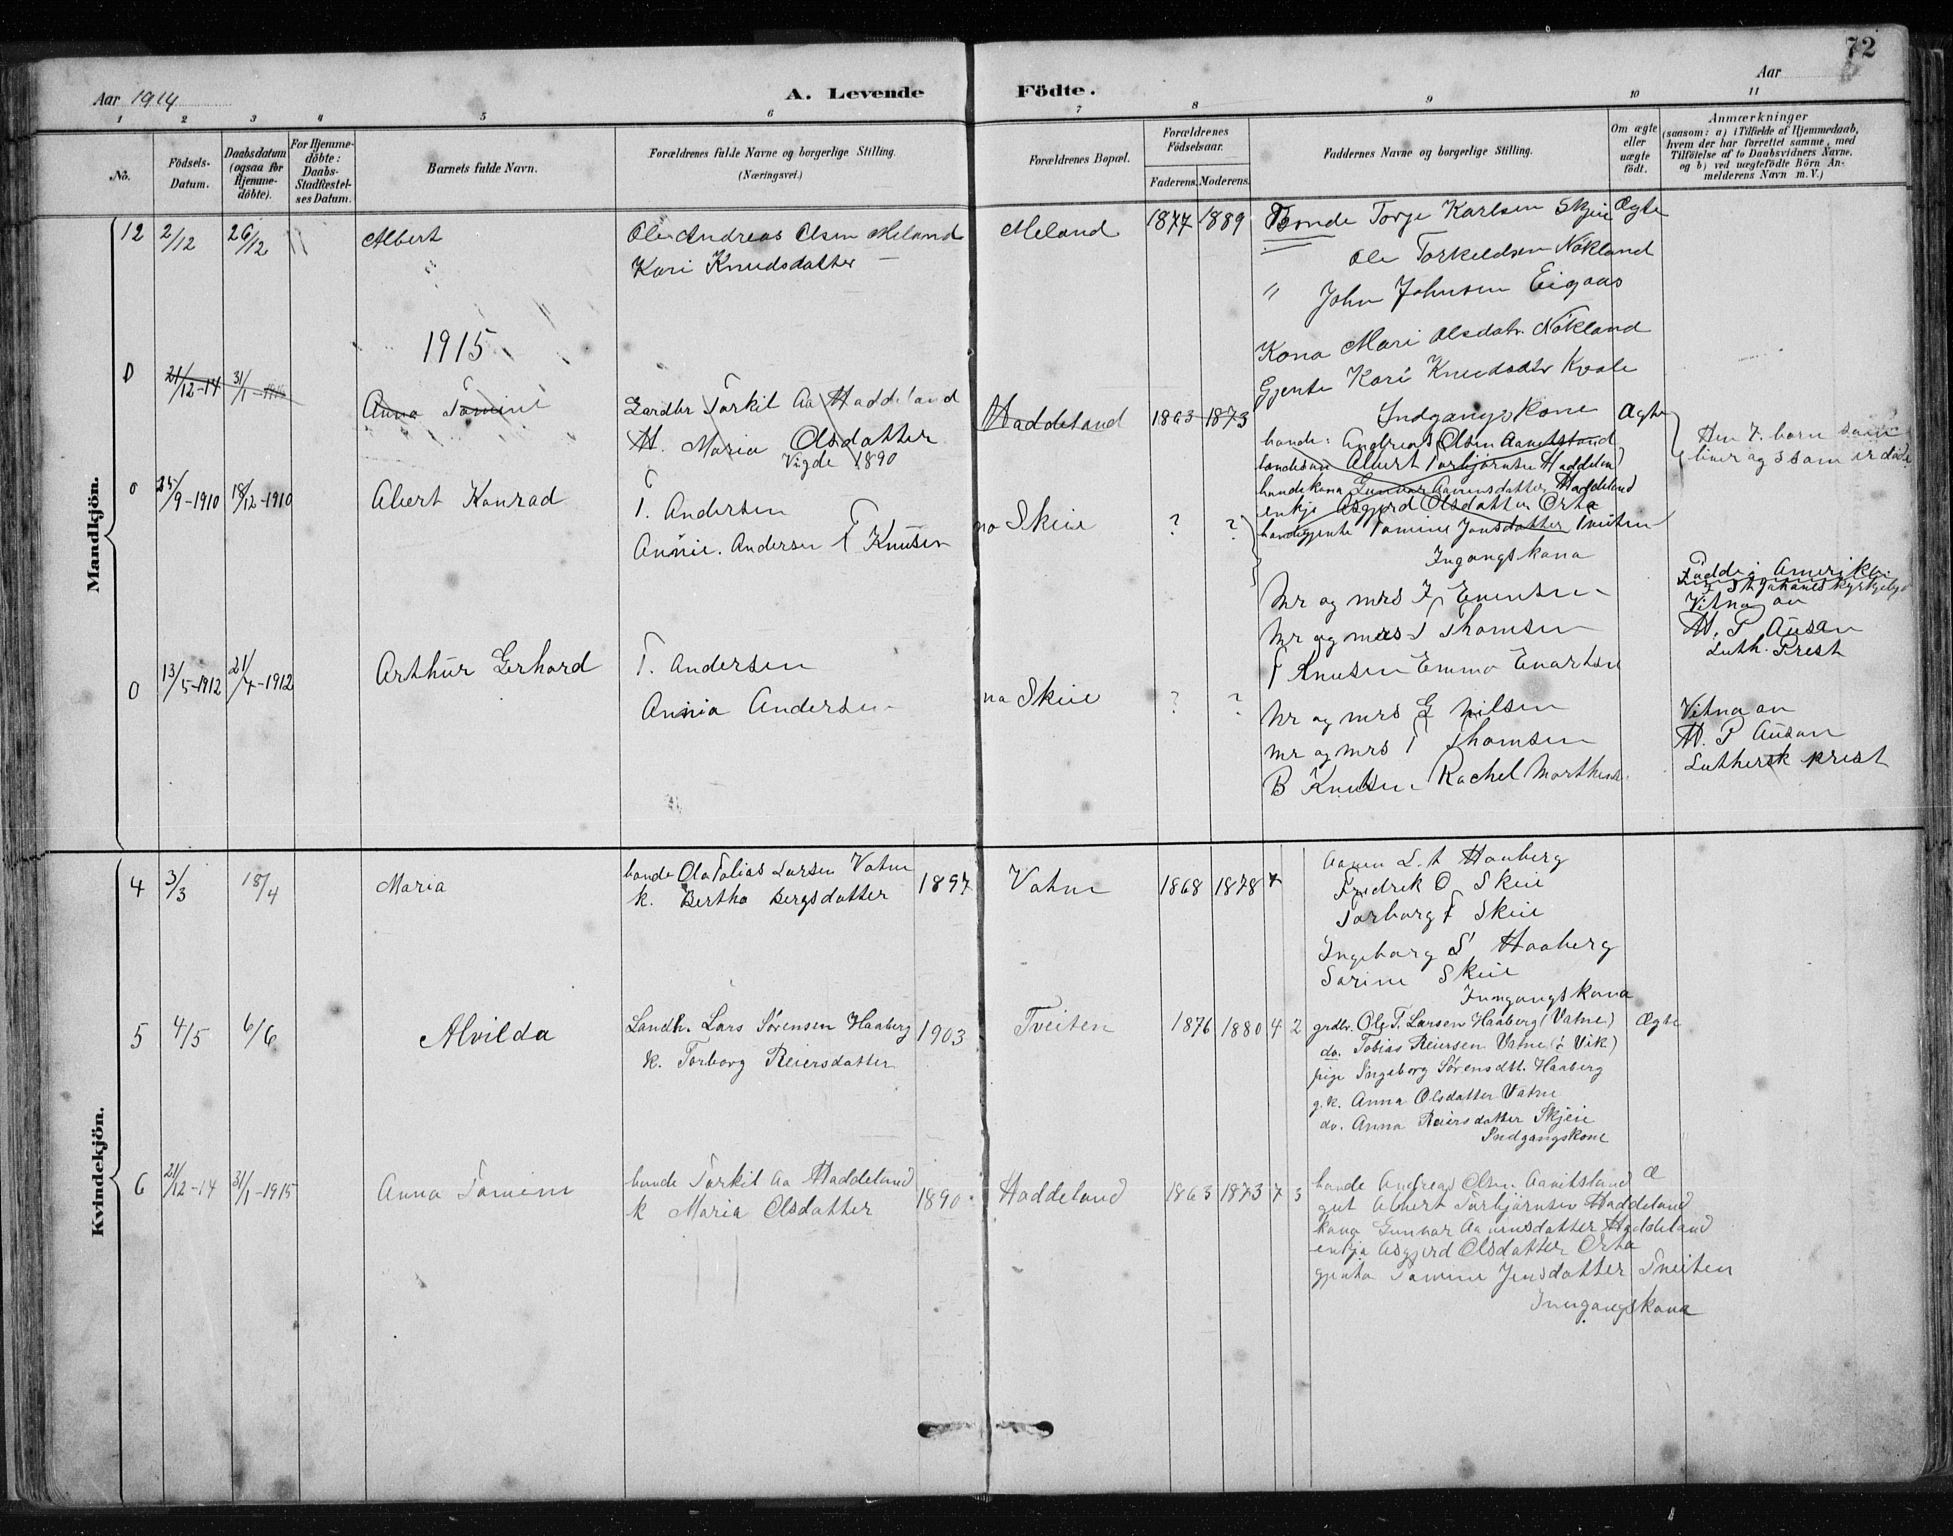 72
Aar 1914
A. Levende Födte.
Aar
1 2 3 4 5 6 7 8 9 10 11
No.
Födsels-Datum.
Daabsdatum (ogsaa for Hjemmedöbte).
For Hjemmedöbte: Daabs-Stadfæstelses Datum.
Barnets fulde Navn.
Forældrenes fulde Navne og borgerlige Stilling. (Næringsvei.)
Forældrenes Bopæl.
Forældrenes Födselsaar.
Faderens. Moderens.
Faddernes Navne og borgerlige Stilling.
Om ægte eller uægte födt.
Anmærkninger
(saasom: a) i Tilfælde af Hjemmedaab, hvem der har forrettet samme, med Tilföielse af to Daabsvidners Navne, og b) ved uægtefödte Börn Anmelderens Navn m. V.)
Mandkjön.
12 2/12 26/12 " Albert
Ole Andreas Olsen Meland
Kari Knudsdatter
Meland 1877 1889
Bonde Torje Karlsen Skjeie Ægte
Ole Torkeldsen Nökland
" John Johnsen Eigaas
Kona Mari Olsdatr. Nökland
Gjente Kari Knudsdtr Kvale
Indgangskone
1915
0 21/12-14 31/1-1915 Anna Tomine
Gardbr Torkil Aa Haddeland
M. Maria Olsdatter
Vigde 1890
Haddeland 1863 1873 Ægte
bonde: Andreas Olsen Aavitsland
bondeson Albert Torbjørnsen Haddeland
bondekona Gunvor Aanensdatter Haddeland
enkje Asgjerd Olsdatter Orta
bondegjenta Tomine Jonsdatter Tveiten
Ingangskona
Hev 7. born som
liver og 3 som er döde
0 25/9-1910 18/12-1910 Albert Konrad
T. Andersen
Annie. Andersen f Knusen
no Skeie ? ?
Mr og mrs F Evensen
Mr og mrs T Thomsen
T Knusen Emma Evartsen
Födde i Amerika
St Johanes kyrkje
Vitna on
M. P. Ausan
Luth. Prest
0 13/5-1912 21/7-1912 Arthur Gerhard
T. Andersen
Annia Andersen
no Skeie ? ?
Mr og mrs G Nilsen
mr og mrs T Thomsen
B Knutsen. Rachel
Vitna on
M. P Ausan
Luthersk prest
Kvindekjön.
4 3/3 18/4 Maria
bonde Ola Tobias Larsen Vatne
k. Bertha Bergsdatter 1897
Vatne 1868 1878 7
Aanen L. Haaberg
Fredrik O Skeie
Torborg F Skeie
Ingeborg S Haaberg
Sorine Skeie
Inngangskona
5 4/5 6/6 Alvilda
Landh. Lars Sørensen Haaberg 1903
k. Torborg Reiersdatter
Tveiten 1876 1880 4 2
grdbr. Ole T. Larsen Haaberg (Vatne) Ægte
do. Tobias Reiersen Vatne (i Vik)
pige Ingeborg Sørensdtt. Haaberg
g.k. Anna Olsdatter Vatne
do. Anna Reiersdatter Skjeie
Indgangskone
6 21/12-14 31/1-1915 Anna Tomine
bonde Torkil Aa Haddeland
k Maria Olsdatter 1890
Haddeland 1863 1873 7 3
bonde Andreas Olsen Aavitsland Æ
gut Albert Torbjörnsen Haddeland
kona Gunvor Aanensdatter Haddeland
enkja Asgjerd Olsdatter Orta
gjenta Tomine Jensdatter Tveiten
Inngangskona